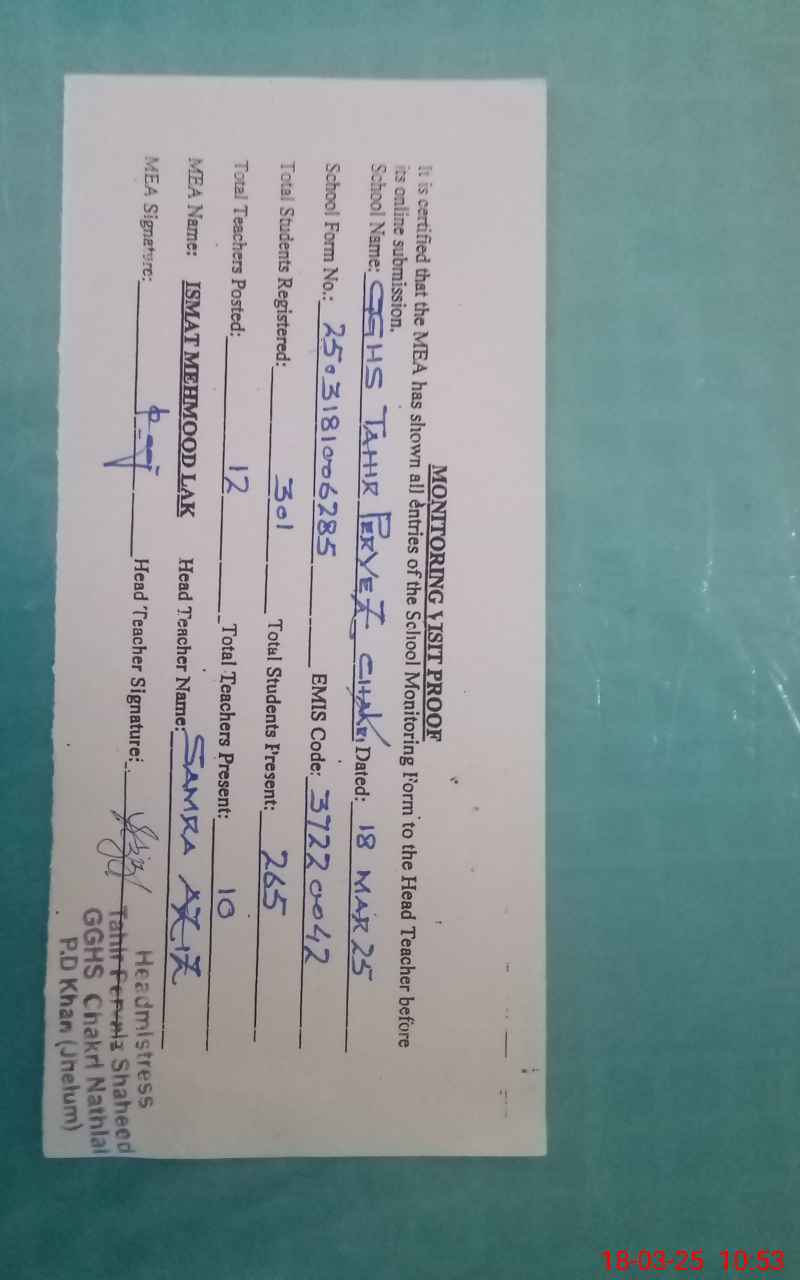 MONITORING VISIT PROOF
It is certified that the MEA has shown all entries of the School Monitoring Form to the Head Teacher before
its online submission.
School Name: GGHS TAHIR PERVEZ CHAK Dated: 18 MAR 25
School Form No.: 25031810006285 EMIS Code: 37220042
Total Students Registered: 301 Total Students Present: 265
Total Teachers Posted: 12 Total Teachers Present: 10
MEA Name: ISMAT MEHMOOD LAK Head Teacher Name: SAMRA AZIZ
MEA Signature: Head Teacher Signature:
Headmistress
Tahir Pervaiz Shaheed
GGHS Chakri Nathlal
P.D Khan (Jhelum)
18-03-25 10:53